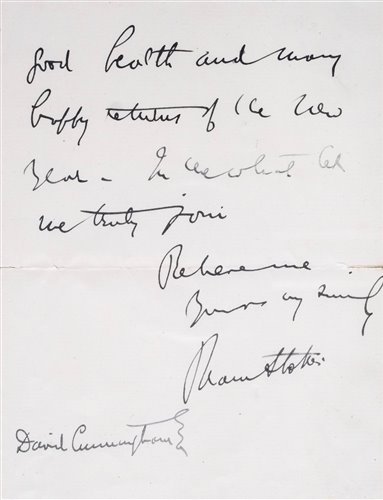 good health and many
happy returns of the New
Year - In
truly join
Believe me
Yours very sincerely
Bram Stoker
David Cunningham Esq